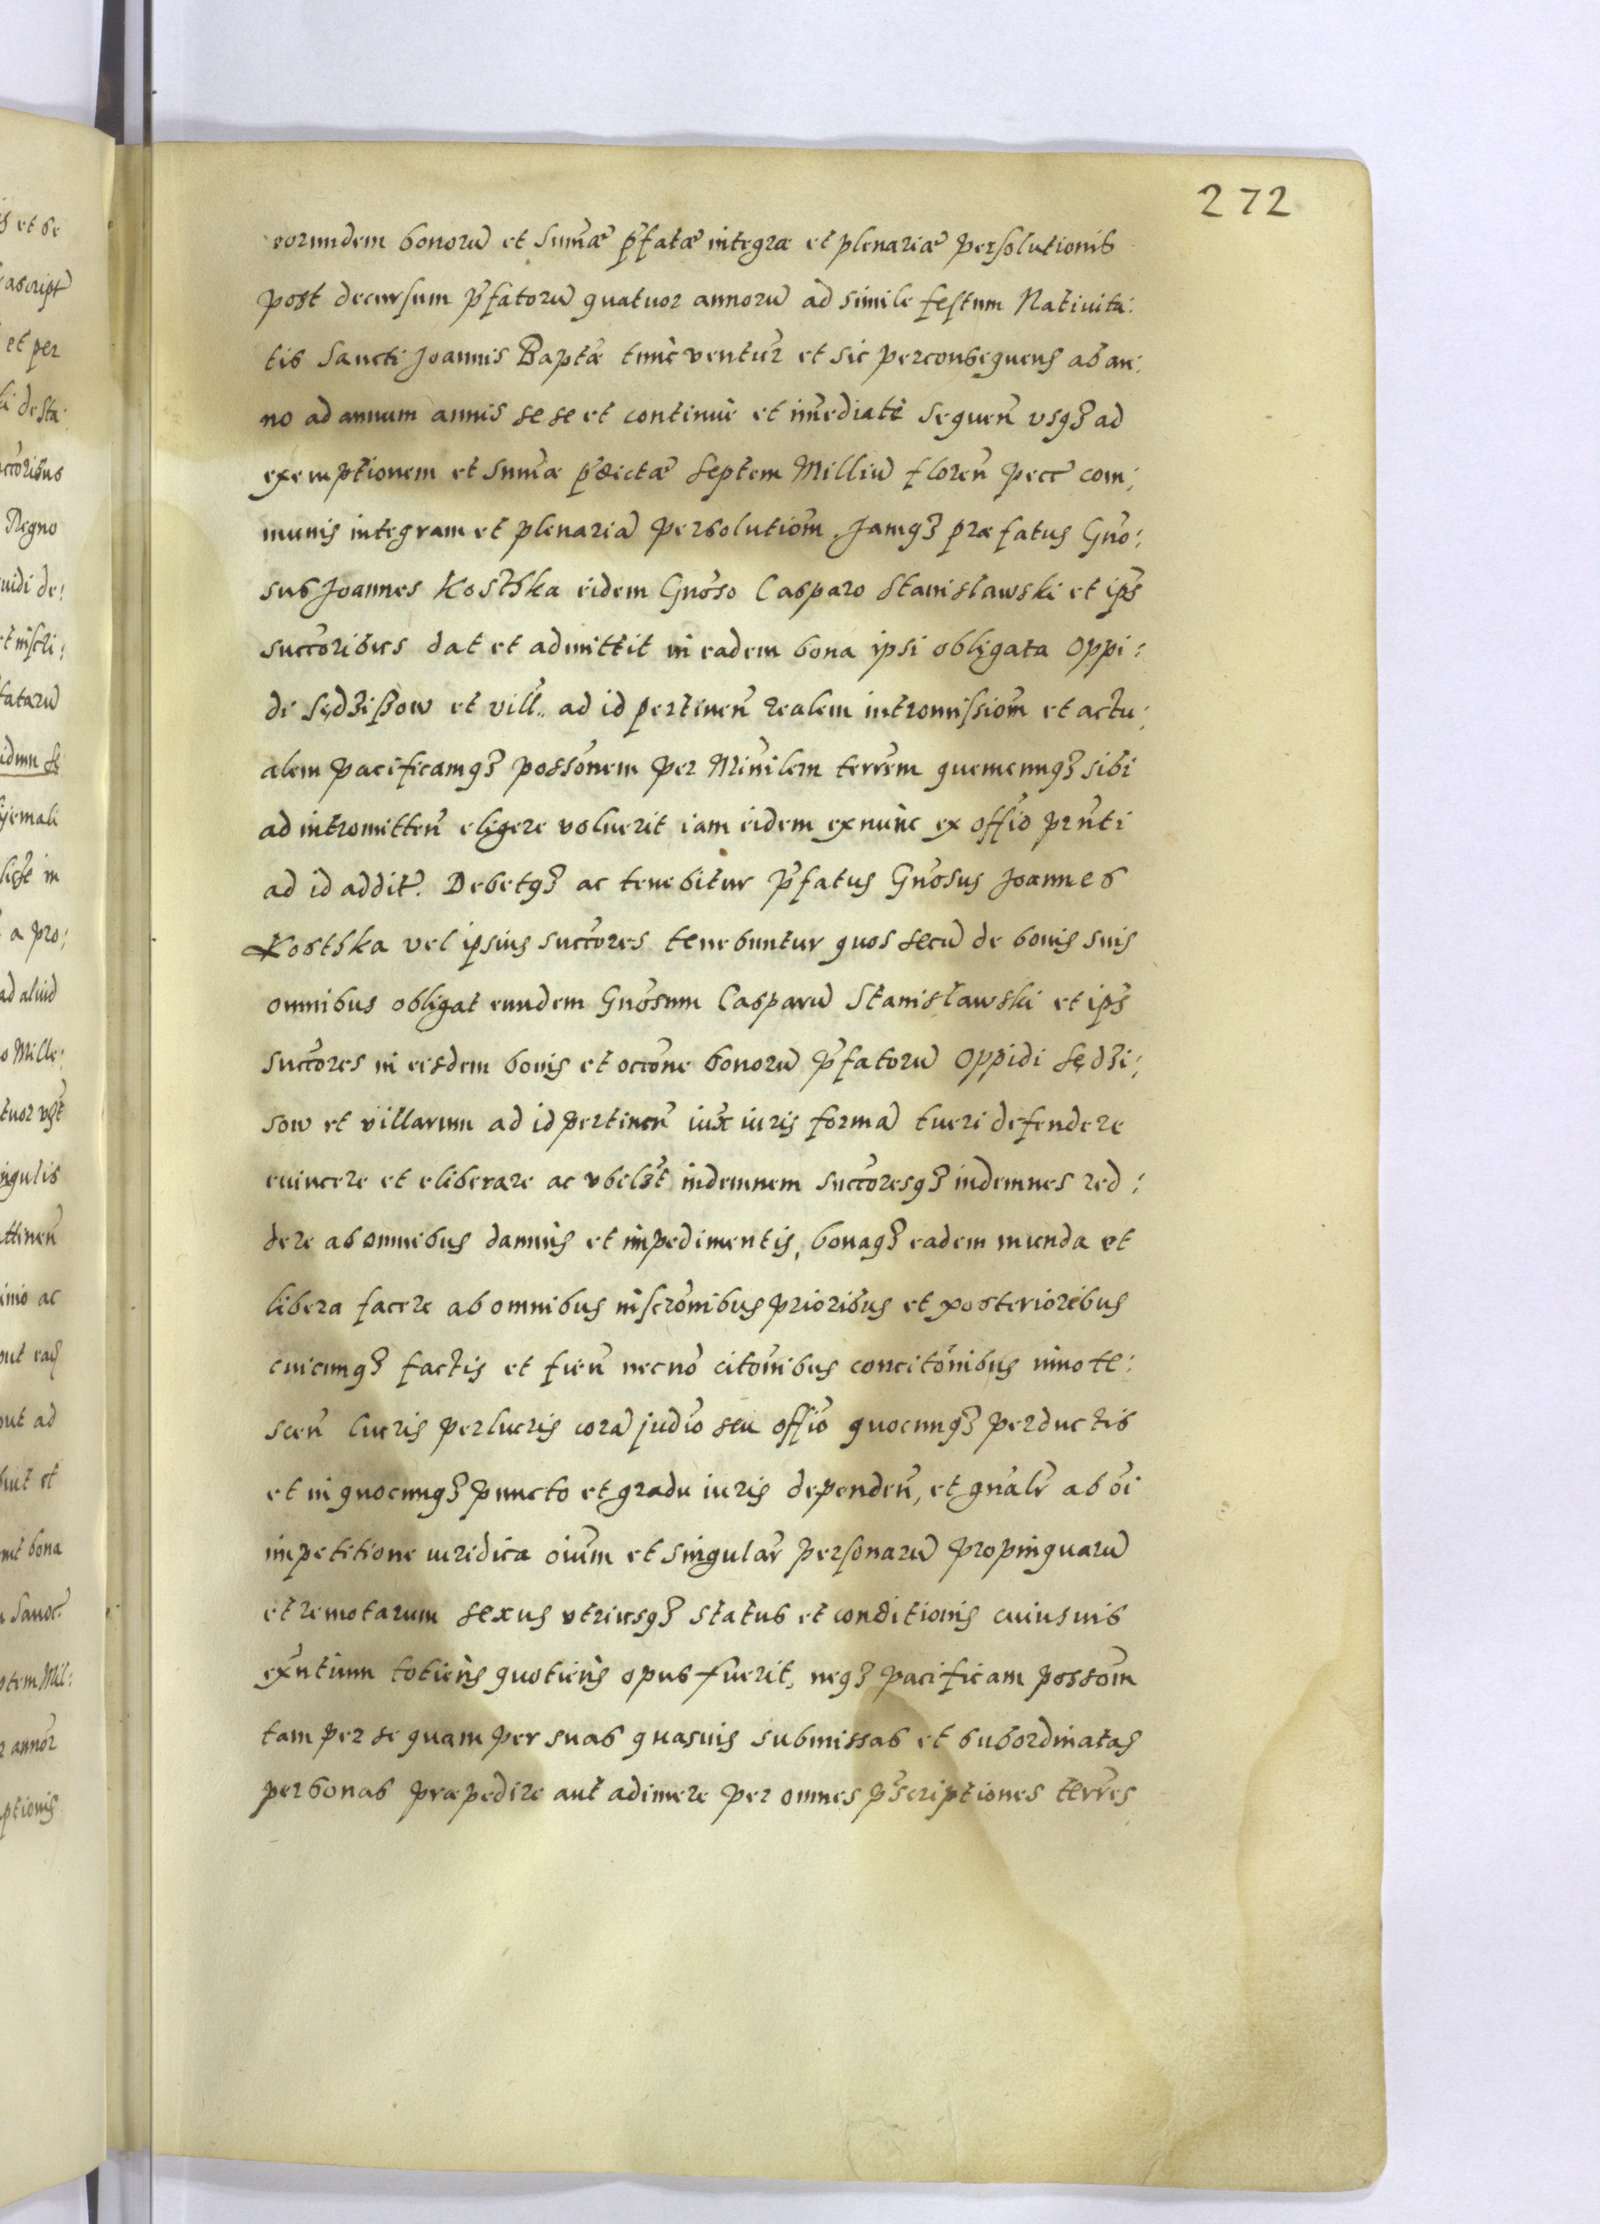 272
eorundem bonorũ et Sum̃æ p̃fatæ integræ et plenariæ persolutionis
post decursum p̃fatorũ quatuor annorũ ad simile festum Nativita:
tis Sancti Joannis Baptæ tunc ventur̃ et sic per consequens ab an:
no ad annum annis se se et continuè et im̃ediatè sequeñ usq3 ad
exemptionem et Sum̃æ p̃dictæ Septem Milliũ floreñ pecc̃ com:
munis integram et plenariã persolutiõm. Jamq3 præfatus Gño:
sus Joannes Kosthka eidem Gñoso Casparo Stanisławski et ip̃s
succ̃oribus dat et admittit in eadem bona ipsi obligata Oppi:
di Sędzißow et vill̃. ad id pertineñ realem intromissiõm et actu:
alem pacificamq3 possõnem per Miñilem terr̃em quemcunq3 sibi
ad intromitteñ eligere voluerit iam eidem ex nunc ex offõ pr̃nti
ad id addit̃. Debetq3 ac tenebitur p̃fatus Gñosus Joannes
Kosthka vel ipsius succ̃ores tenebuntur quos secũ de bonis suis
omnibus obligat eundem Gñosum Casparũ Stanisławski et ip̃s
succ̃ores in eisdem bonis et occõne bonorũ p̃fatorũ Oppidi Sędzi:
sow et villarum ad id pertineñ iuxt̃ iuris formã tueri defendere
evincere et eliberare ac vbelȝt̃ indemnem succ̃oresq3 indemnes red:
dere ab omnibus damnis et impedimentis, bonaq3 eadem munda et
libera facere ab omnibus inscrõnibus prioribus et posterioribus
cuicunq3 factis et fieñ necnõ citõnibus concitõnibus inno te:
sceñ lucris perlucris corã judĩo seu offõ quocunq3 perductis
et in quocunq3 puncto et gradu iuris dependeñ, et gñalr̃ ab õi
impetitione iuridica oĩum et singular̃ personarũ propinquarũ
et remotarum sexus vtriusq3 status et conditionis cuiusvis
exñtium totiens quotiens opus fuerit, neq3 pacificam possõm
tam per se quam per suas quasvis submissas et subordinatas
personas præpedire aut adimere per omnes p̃scriptiones terr̃es